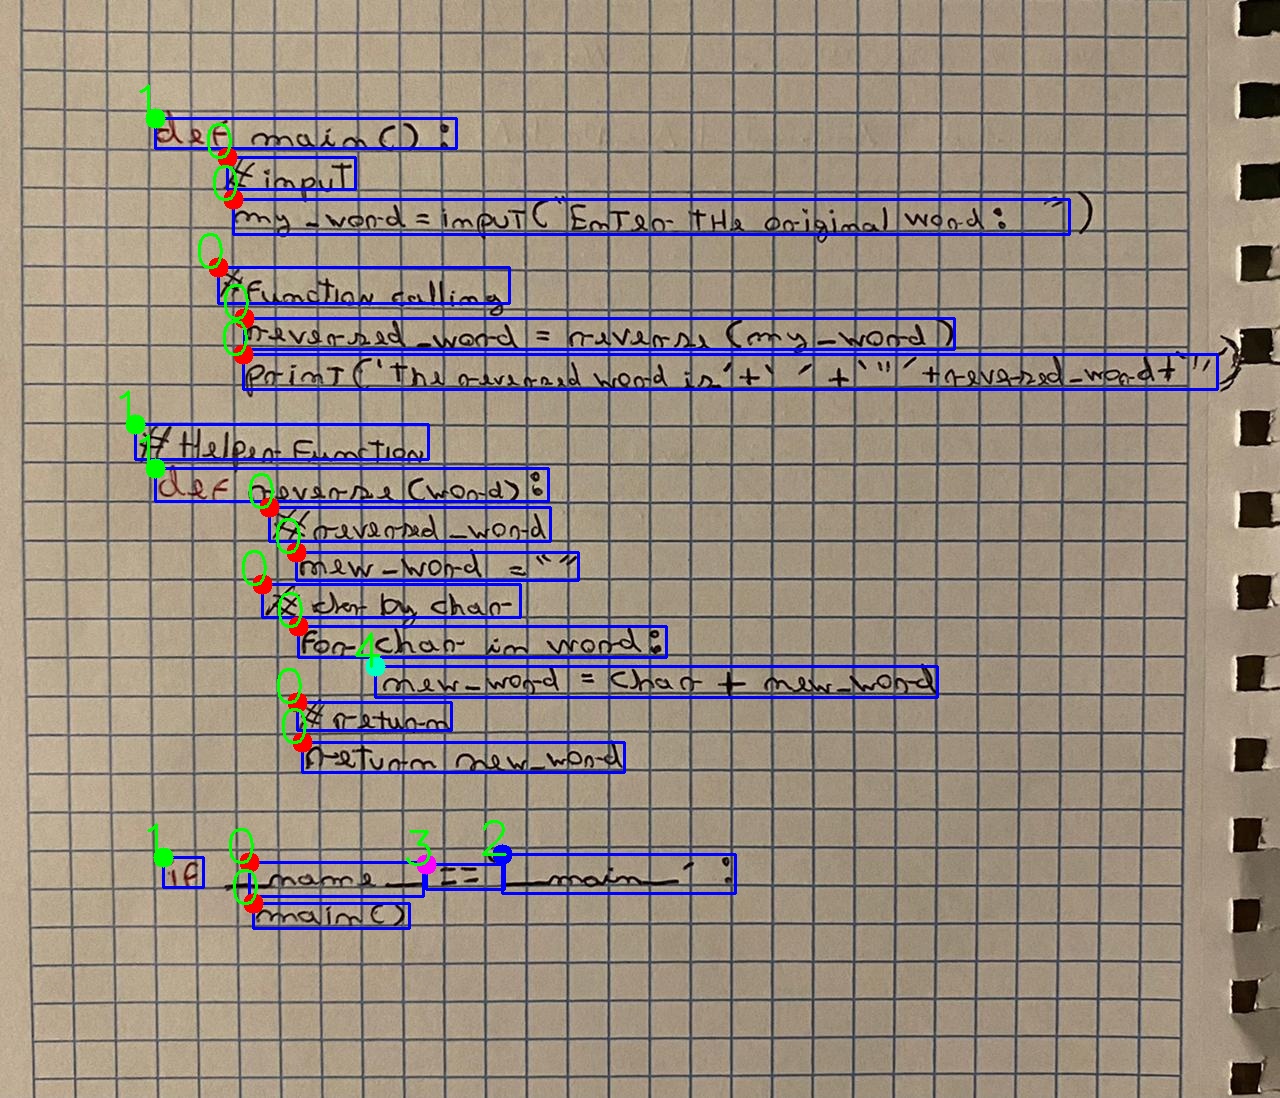 def main():
# input
my_word = input("Enter the original word: ")
# function calling
reversed_word = reverse(my_word)
print('The reversed word is' + ' ' + '"' + reversed_word + '"')
# Helper Function
def reverse(word):
# reversed_word
new_word = ""
# char by char
for char in word:
new_word = char + new_word
# return
return new_word
if __name__ == __main__':
main()